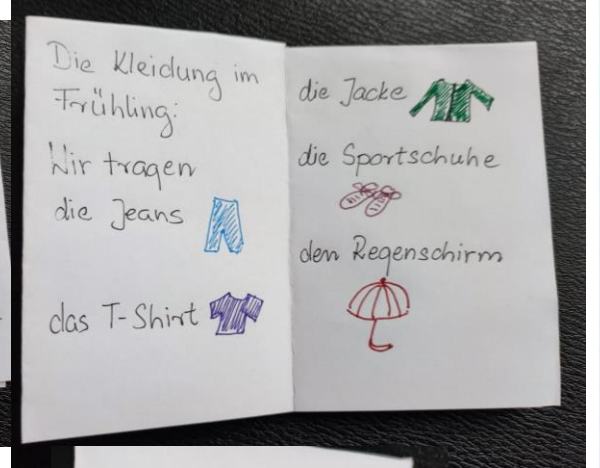 Die Kleidung im
Frühling:
Wir tragen
die Jeans
das T-Shirt
die Jacke
die Sportschuhe
den Regenschirm